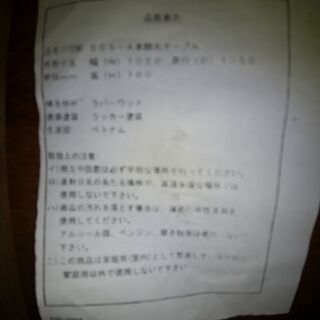 品質表示
幅(W)1050 奥行(D)1050
高(H)700
構造部材 ラバーウッド
表面塗装 ラッカー塗装
生産国 ベトナム
取扱上の注意
イ)組立や設置は必ず平坦な場所で行ってください。
ロ)直射日光のあたる場所や、高温多湿な場所では
使用しないで下さい。
ハ)商品の汚れを落とす場合は、薄めた中性洗剤を
使用してください。
アルコール類、ベンジン、磨き粉等は使用しないで
下さい。
ニ)この商品は家庭用(室内)として製造して
家庭用以外で使用しないで下さい